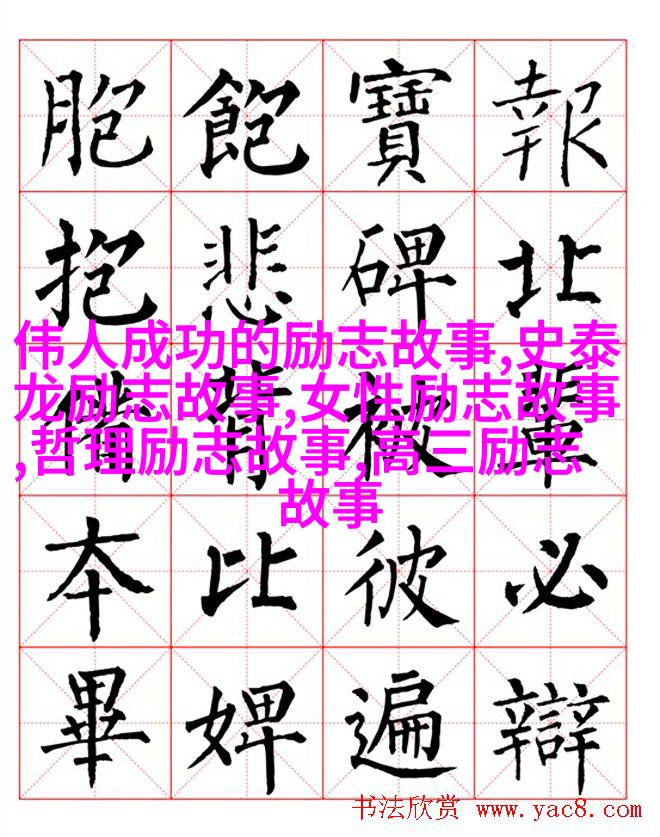 胞 飽 寶 報
抱 悲 碑 北
伟人成功的励志故事,史泰
龙励志故事,女性励志故事
,哲理励志故事,高三励志
故事
備 背 被 輩
本 比 彼 必
畢 婢 遍 辯
书法欣赏 www.yac8.com